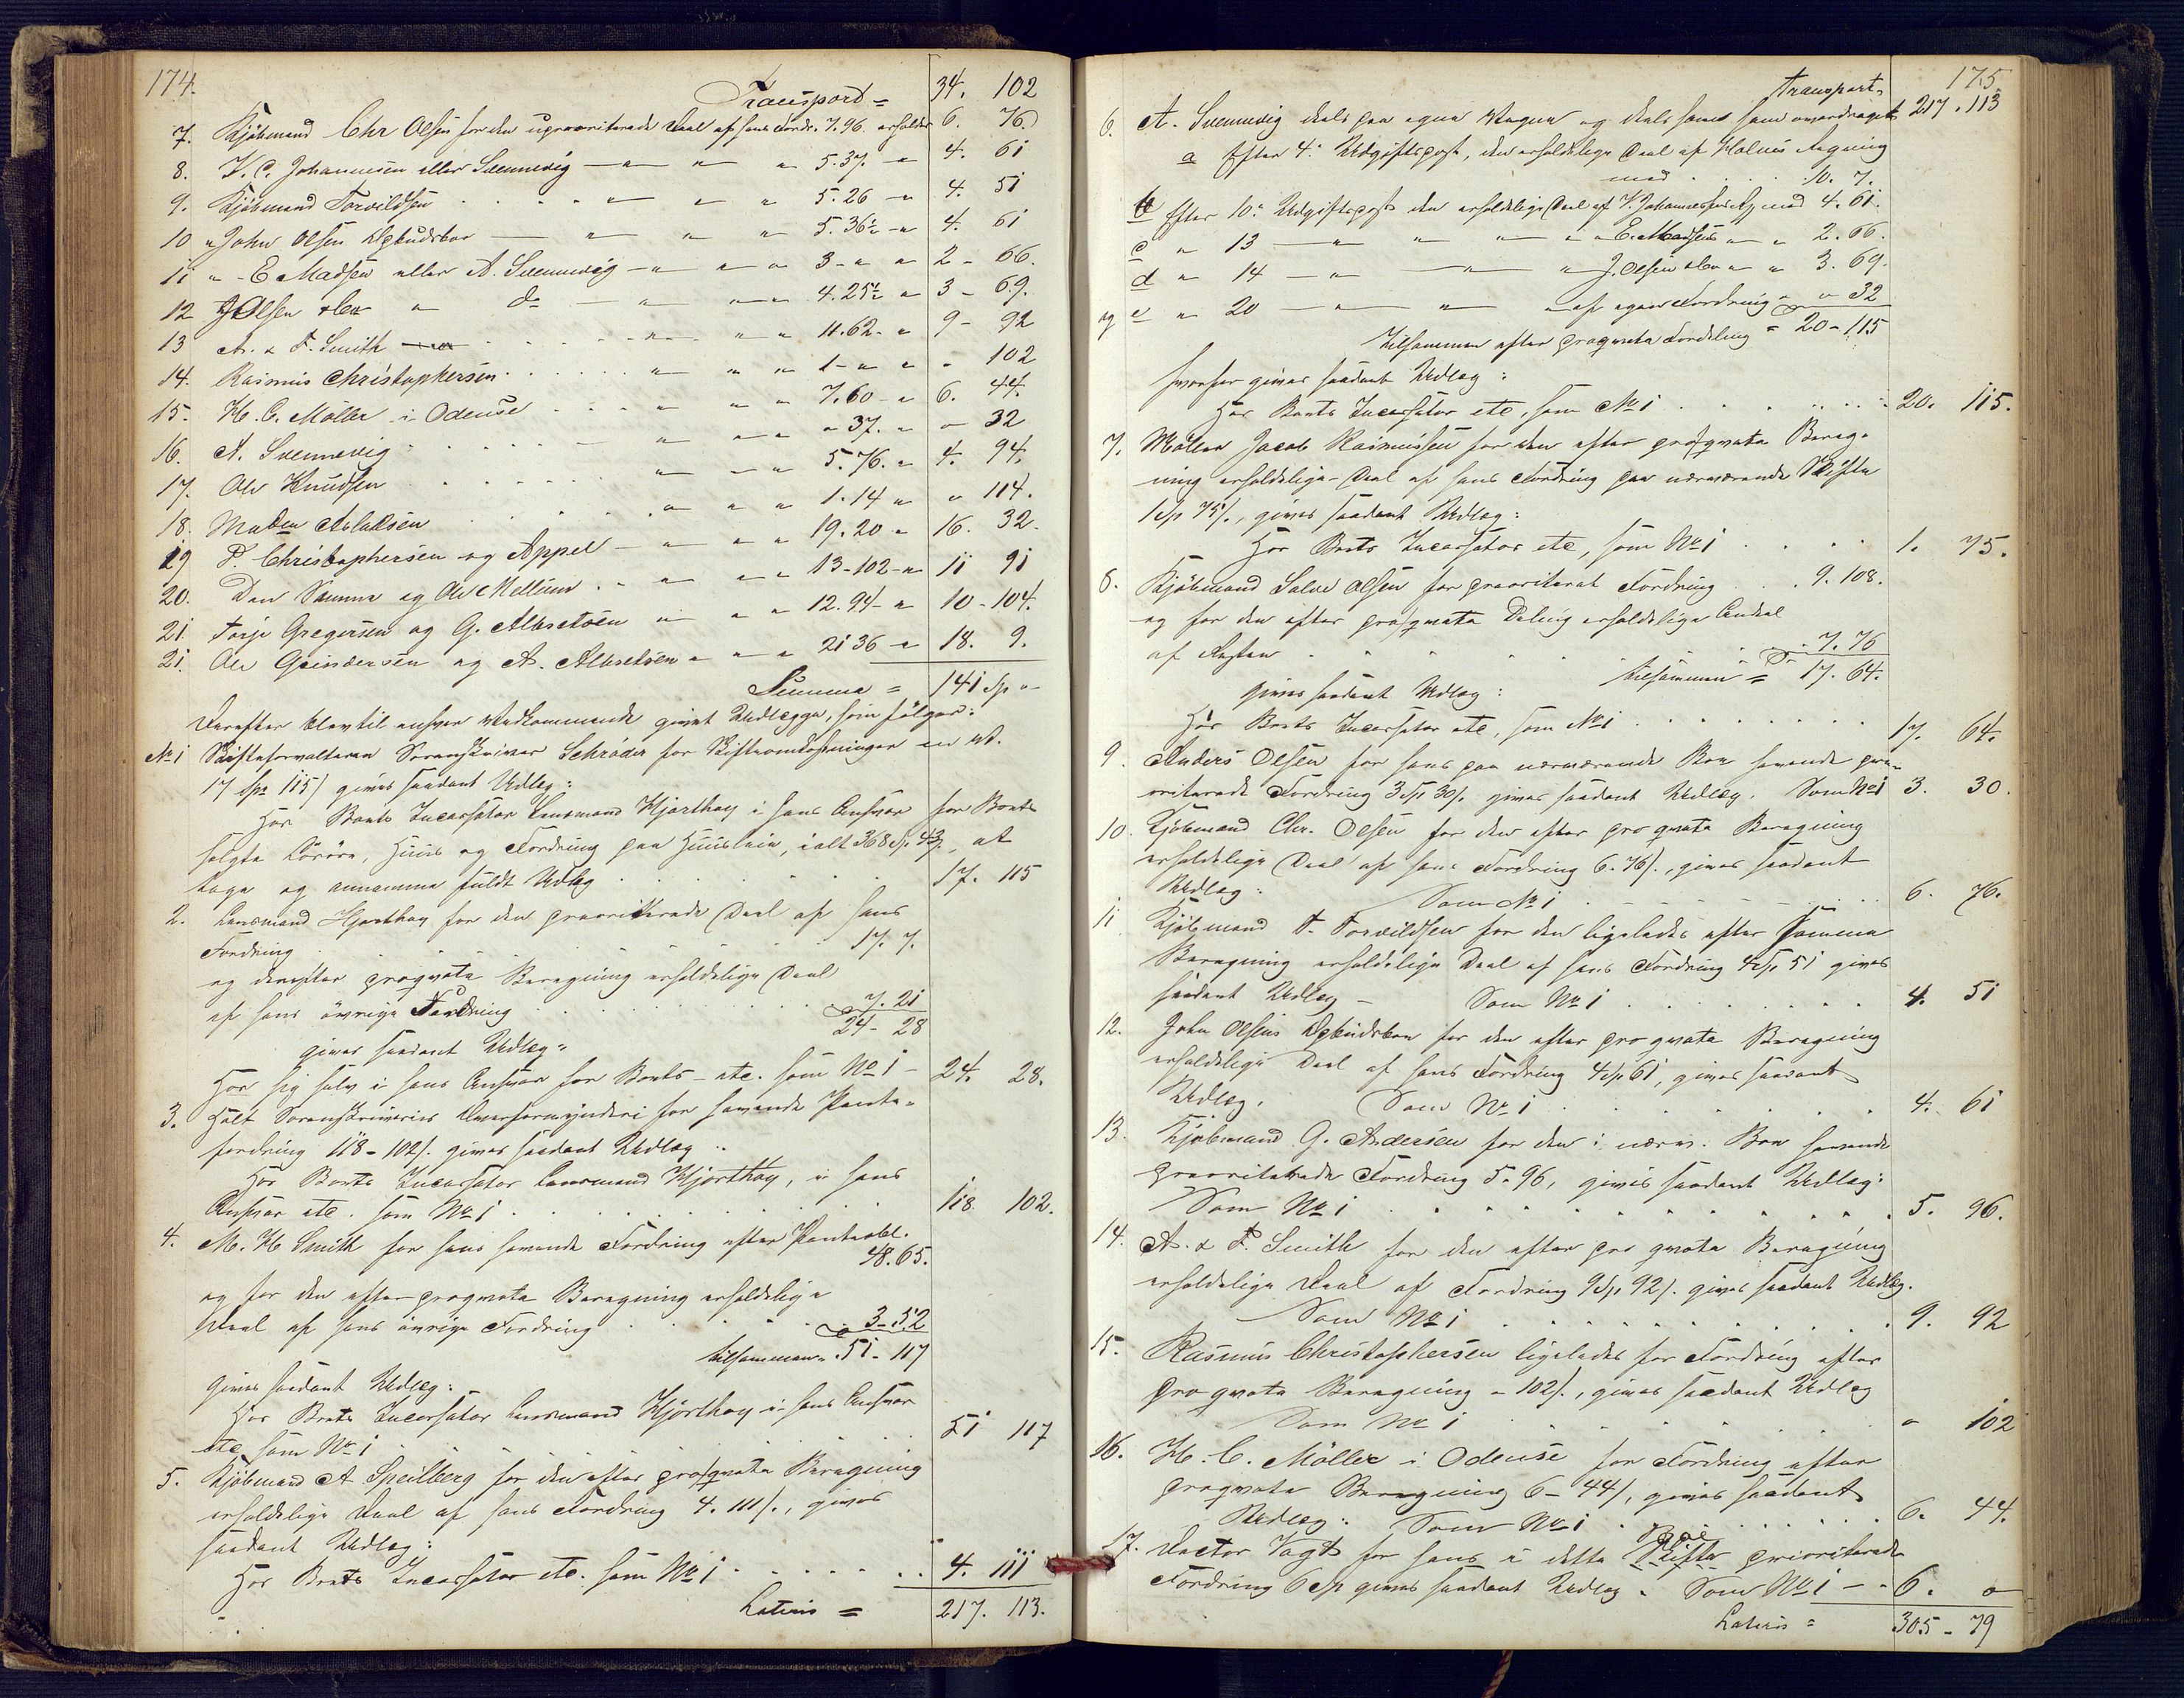 174.
Transport = 34. 102
7. Kjøbmand Chr Olsen for den uprioriterede Deel af hans Fordr. 7.96. erholder 6. 76.
8. K. C. Johannesen eller Svennevig — " " " 5.37. " 4. 61
9. Kjøbmand Torvildsen . . . . " " " 5.26 " 4. 51
10 " John Olsen Opbudsboe — " " " 5.36½ " 4. 61
11 " E Madsen eller A. Svennevig — " " " 3 - " " 2 - 66.
12 J Olsen eller " do — " " " 4.25½ " 3 - 69.
13 A. & F. Smith . . . . " " " 11.62 - " 9 - 92
14. Rasmus Christophersen . . . . " " " 1 - " " " 102
15. H. C. Möller i Odense . . . " " " 7.60 - " 6. 44.
16. A. Svennevig . . . . " " " " 37. " " 32
17. Ole Knudsen . . . . " " " 5.76. " 4. 94.
18. Mads Aslaksen . . . . " " " 1.14 " " 114.
19 P. Christophersen og Appel — " " " 19.20 " 16. 32.
20. Den Samme og Ole Mellum . . " " " 13-102 - " 11 91
21. Torje Gregersen og G. Albretsen " " " 12.94 - " 10 - 104.
21. Ole Gundersen og A. Albretsen " " " 21 36 - " 18. 9.
Summa = 141 Sp " -
Derefter blev til enhver Vedkommende givet Udlægge, som følger:
No 1 Skifteforvalteren Sorenskriver Schröder for Skifteomkostninger
17 Spd 115 ß gives saadant Udlæg:
Hos Boets Incassator Lensmand Hjorthøy i hans Ansvar for Boets
solgte Løsøre, Huus og Fordring paa Huusleie, ialt 368 Sp. 43 ß, at
tage og annamme fuldt Udlæg . . . . 17. 115
2. Lensmand Hjorthøy for den prioriterede Deel af hans
Fordring . . . . 17. 7.
og derefter pro qvota Beregning erholdelige Deel
af hans øvrige Fordring . . . . 7. 21
24 - 28
gives saadant Udlæg:
Hos sig selv i hans Ansvar for Boets - etc. som No 1 - 24. 28.
3. Holt Sorenskriveries Overformynderi for havende Pante-
fordring 118 - 102 ß. gives saadant Udlæg:
Hos Boets Incassator Lensmand Hjorthøy, i hans
Ansvar etc. som No 1 . . . . 118 102.
4. M. H. Smith for hans havende Fordring efter Panteobl.
48. 65.
og for den efter pro qvota Beregning erholdelige
Deel af hans øvrige Fordring . . . . 3 - 52
tilsammen . 51 - 117
gives saadant Udlæg:
Hos Boets Incassator Lensmand Hjorthøy i hans Ansvar
etc som No 1 . . . . 51 117
5. Kjøbmand A Speilberg for den efter pro qvota Beregning
erholdelige Deel af hans Fordring 4. 111 ß., gives
saadant Udlæg:
Hos Boets Incassator etc. som No 1 . . . . 4. 111
Lateris = 217. 113.
175
Transport = 217. 113
6. A. Svennevig deels paa egne Vegne og deels som ham overdraget
a Efter 4. Udgiftspost, den erholdelige Deel af Holms Regning
med . . . 10. 7.
b Efter 10. Udgiftspost den erholdelige Deel af K. Johannesens Rg med 4. 61.
c " 13 — " " " " E. Madsens " " 2. 66.
d " 14 — " — " J. Olsen eller " " 3. 69.
og e " 20 — " — " " af egen Fordring " " 32
Tilsammen efter pro qvota Fordeling = 20 - 115
hvorfor gives saadant Udlæg:
Hos Boets Incassator etc, som No 1 . . . . 20. 115.
7. Møller Jacob Rasmussen for den efter pro qvota Bereg-
ning erholdelige Deel af hans Fordring paa nærværende Skifte
1 Sp 75 ß., gives saadant Udlæg:
Hos Boets Incassator etc, som No 1 . . . . 1. 75.
8. Kjøbmand Salve Olsen for prioriteret Fordring . . 9. 108.
og for den efter pro qvota Deling erholdelige Andeel
af Resten . . . . 7. 76
tilsammen = 17. 64.
gives saadant Udlæg:
Hos Boets Incassator etc, som No 1 . . . . 17. 64.
9. Anders Olsen for hans paa nærværende Boe havende pri-
oriterede Fordring 3 Sp 30 ß. gives saadant Udlæg. Som No 1 3. 30.
10. Kjøbmand Chr. Olsen for den efter pro qvota Beregning
erholdelige Deel af hans Fordring 6. 76 ß., gives saadant
Udlæg: Som No 1 . . . . 6. 76.
11 Kjøbmand T. Torvildsen for den ligeledes efter samme
Beregning erholdelige Deel af hans Fordring 4 Sp. 51 gives
saadant Udlæg - Som No 1 . . . . 4. 51
12. John Olsens Opbudsboe for den efter pro qvota Beregning
erholdelige Deel af hans Fordring 4 Sp 61, gives saadant
Udlæg. Som No 1 . . . . 4. 61
13. Kjøbmand G. Andersen for den i nærv. Boe havende
prioriterede Fordring 5 - 96, gives saadant Udlæg:
Som No 1 . . . . 5. 96.
14. A. & F. Smith for den efter pro qvota Beregning
erholdelige Deel af Fordring 9 Sp. 92 ß. gives saadant Udlæg.
Som No 1 . . . . 9. 92
15. Rasmus Christophersen ligeledes for Fordring efter
pro qvota Beregning " 102 ß., gives saadant Udlæg
Som No 1 . . . . " 102
16. H. C. Möller i Odense for Fordring efter
pro qvota Beregning 6 - 44 ß, gives saadant
Udlæg: Som No 1 . . . . 6. 44.
17. Doctor Vogt for hans i dette Boe prioriterede
Fordring 6 Sp gives saadant Udlæg. Som No 1 - - 6. "
Lateris = 305 - 79